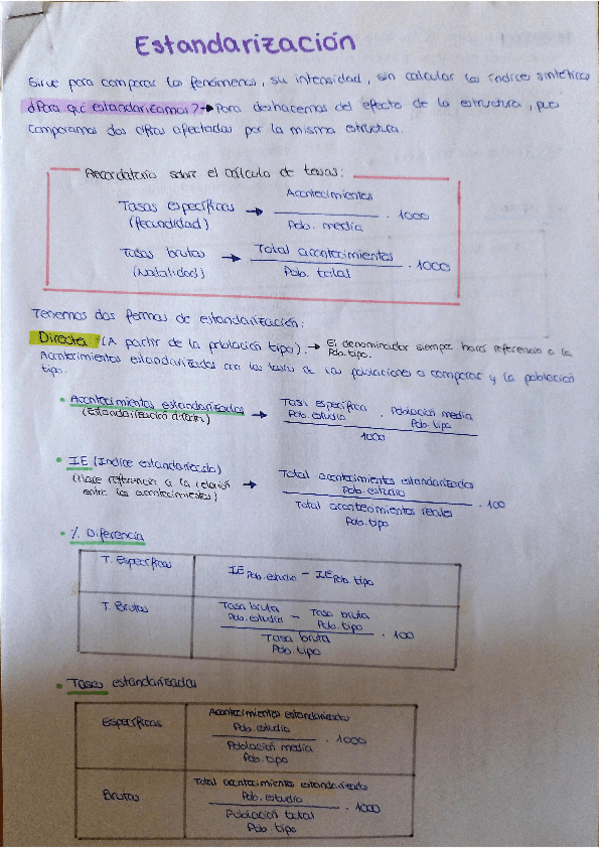 Estandarización
Sirve para comparar los fenómenos, su intensidad, sin calcular los índices sintéticos
¿Para qué estandarizamos? → Para deshacernos del efecto de la estructura, pues
comparamos dos cifras afectadas por la misma estructura.
Recordatorio sobre el cálculo de tasas:
Tasas específicas (fecundidad) → Acontecimientos / Pob. media · 1000
Tasas brutas (Natalidad) → Total acontecimientos / Pob. total · 1000
Tenemos dos formas de estandarización:
Directa (A partir de la población tipo). → El denominador siempre hará referencia a la Pob. tipo.
Acontecimientos estandarizados con las tasas de las poblaciones a comparar y la población
tipo.
• Acontecimientos estandarizados → Tasa específica Pob. estudio · Población media Pob. tipo / 1000
(Estandarización directa)
• IE (Indice estandarizado) → Total acontecimientos estandarizados Pob. estudio / Total acontecimientos reales Pob. tipo · 100
(Hace referencia a la relación
entre los acontecimientos)
• % Diferencia
T. Específicas IE Pob. estudio - IE Pob. tipo
T. Brutas Tasa bruta Pob. estudio - Tasa bruta Pob. tipo / Tasa bruta Pob. tipo · 100
• Tasas estandarizadas
Específicas Acontecimientos estandarizados Pob. estudio / Población media Pob. tipo · 1000
Brutas Total acontecimientos estandarizados Pob. estudio / Población total Pob. tipo · 1000